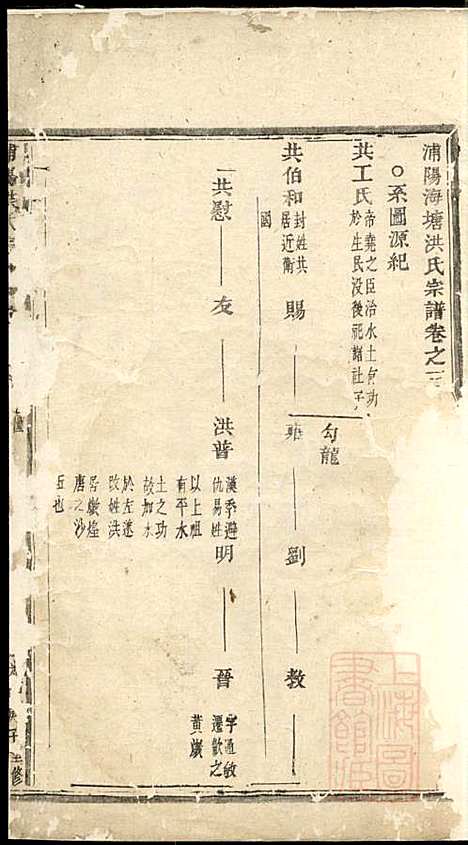 浦陽海塘洪氏宗譜卷之
系圖源紀
共工氏 帝堯之臣治水土有功
於生民没後祀諸社
勾龍
共伯和 封姓共
居近衛
國
賜 雍 劉 教
共慰 友 洪普
漢季避
仇易姓
以上祖
有平水
土之功
故加水
於左遂
改姓洪
居燉煌
唐之沙
丘也
明 晉
字通敏
遷歙之
黃巖
上海圖書館藏